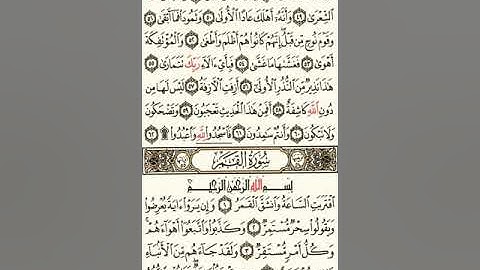 الشِّعْرَىٰ ٤٩ وَأَنَّهُ أَهْلَكَ عَادًا الْأُولَىٰ ٥٠ وَثَمُودَا فَمَا أَبْقَىٰ ٥١
وَقَوْمَ نُوحٍ مِّن قَبْلُ إِنَّهُمْ كَانُوا هُمْ أَظْلَمَ وَأَطْغَىٰ ٥٢ وَالْمُؤْتَفِكَةَ
أَهْوَىٰ ٥٣ فَغَشَّاهَا مَا غَشَّىٰ ٥٤ فَبِأَيِّ آلَاءِ رَبِّكَ تَتَمَارَىٰ ٥٥
هَٰذَا نَذِيرٌ مِّنَ النُّذُرِ الْأُولَىٰ ٥٦ أَزِفَتِ الْآزِفَةُ ٥٧ لَيْسَ لَهَا مِن
دُونِ اللَّهِ كَاشِفَةٌ ٥٨ أَفَمِنْ هَٰذَا الْحَدِيثِ تَعْجَبُونَ ٥٩ وَتَضْحَكُونَ
وَلَا تَبْكُونَ ٦٠ وَأَنتُمْ سَامِدُونَ ٦١ فَاسْجُدُوا لِلَّهِ وَاعْبُدُوا ۩ ٦٢
سُورَةُ القَمَر
بِسْمِ اللَّهِ الرَّحْمَٰنِ الرَّحِيمِ
اقْتَرَبَتِ السَّاعَةُ وَانشَقَّ الْقَمَرُ ١ وَإِن يَرَوْا آيَةً يُعْرِضُوا
وَيَقُولُوا سِحْرٌ مُّسْتَمِرٌّ ٢ وَكَذَّبُوا وَاتَّبَعُوا أَهْوَاءَهُمْ
وَكُلُّ أَمْرٍ مُّسْتَقِرٌّ ٣ وَلَقَدْ جَاءَهُم مِّنَ الْأَنبَاءِ